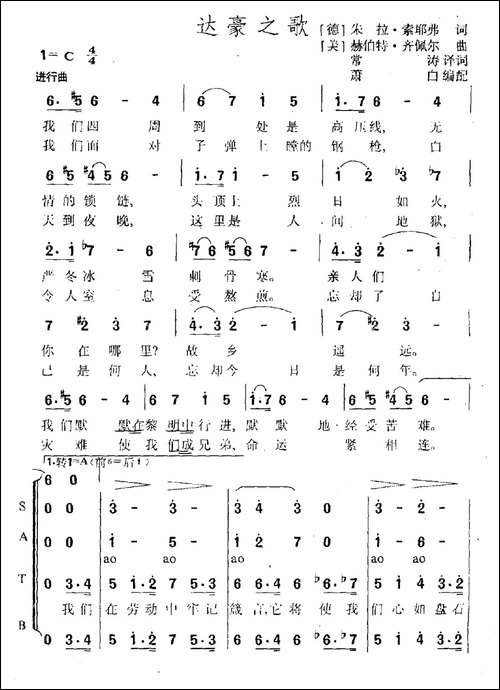 达豪之歌
[德]朱拉·索耶弗 词
[美]赫伯特·齐佩尔 曲
常涛译词
萧白编配
1=C 4/4
进行曲
6·#5 6 - 4 6 7 1 5 1·7 1 - 4
我们四 周 到 处是 高压线, 无
我们面 对 子 弹上膛的 钢枪, 白
6 5 #4 5 6 - 1·7 1 6 5 1 2 b3 b7
情的锁 链, 头顶上 烈 日 如火,
天到夜晚, 这里是 人 间 地狱,
2·1 b7 - 6 #7 6 #5 6 7 - 4·3 2 - 1
严冬冰 雪 刺骨寒。 亲人们
令人窒 息 受熬煎。 忘却了 自
7 #2 3 7 4·3 2 - 1 7 #2 3 -
你在哪里? 故乡 遥远。
己是何人, 忘却今日 是何年。
6·#5 6 - 4 6 7 1 7 6 5 1·7 6 - 4 6 #5 #4 5 6 -
我们默 默在黎明中行进,默默 地·经受苦难。
灾难 使我们成兄弟,命运 紧相连。
1.转1=A(前6=后1)
6 0 3 - 3 - 3 4 3 0 2 - 2 -
S 0 0 1 - 5 - 1 2 7 0 6 - 5 -
ao ao ao ao
A 0 3·4 5 1·2 7 5·3 6 6·4 b6 b6·7 1 1·2 5 3·4
T 我们 在劳动中牢记 箴言,它将使我 们心如盘石
B 0 3·4 5 1·2 7 5·3 6 6·4 b6 b6·7 1 1·2 5 3·4